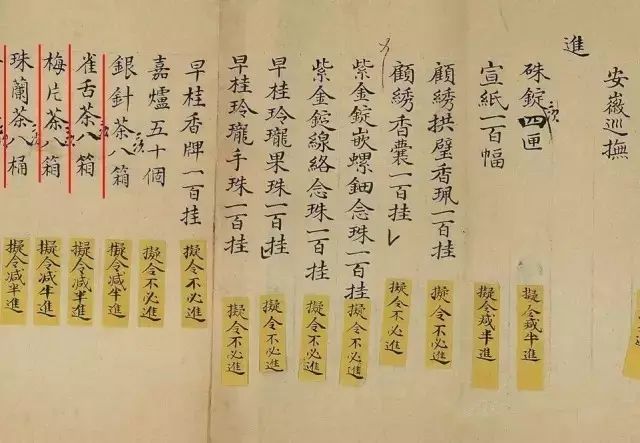 安徽巡撫
進
硃錠四匣
擬令減半進
宣紙一百幅
擬令減半進
顧綉拱璧香珮一百挂
擬令不必進
顧綉香囊一百挂
擬令不必進
紫金錠嵌螺鈿念珠一百挂
擬令不必進
紫金錠線絡念珠一百挂
擬令不必進
早桂玲瓏果珠一百挂
擬令不必進
早桂玲瓏手珠一百挂
擬令不必進
早桂香牌一百挂
擬令不必進
嘉爐五十個
擬令不必進
銀針茶八箱
擬令減半進
雀舌茶八箱
擬令減半進
梅片茶八箱
擬令減半進
珠蘭茶八桶
擬令減半進